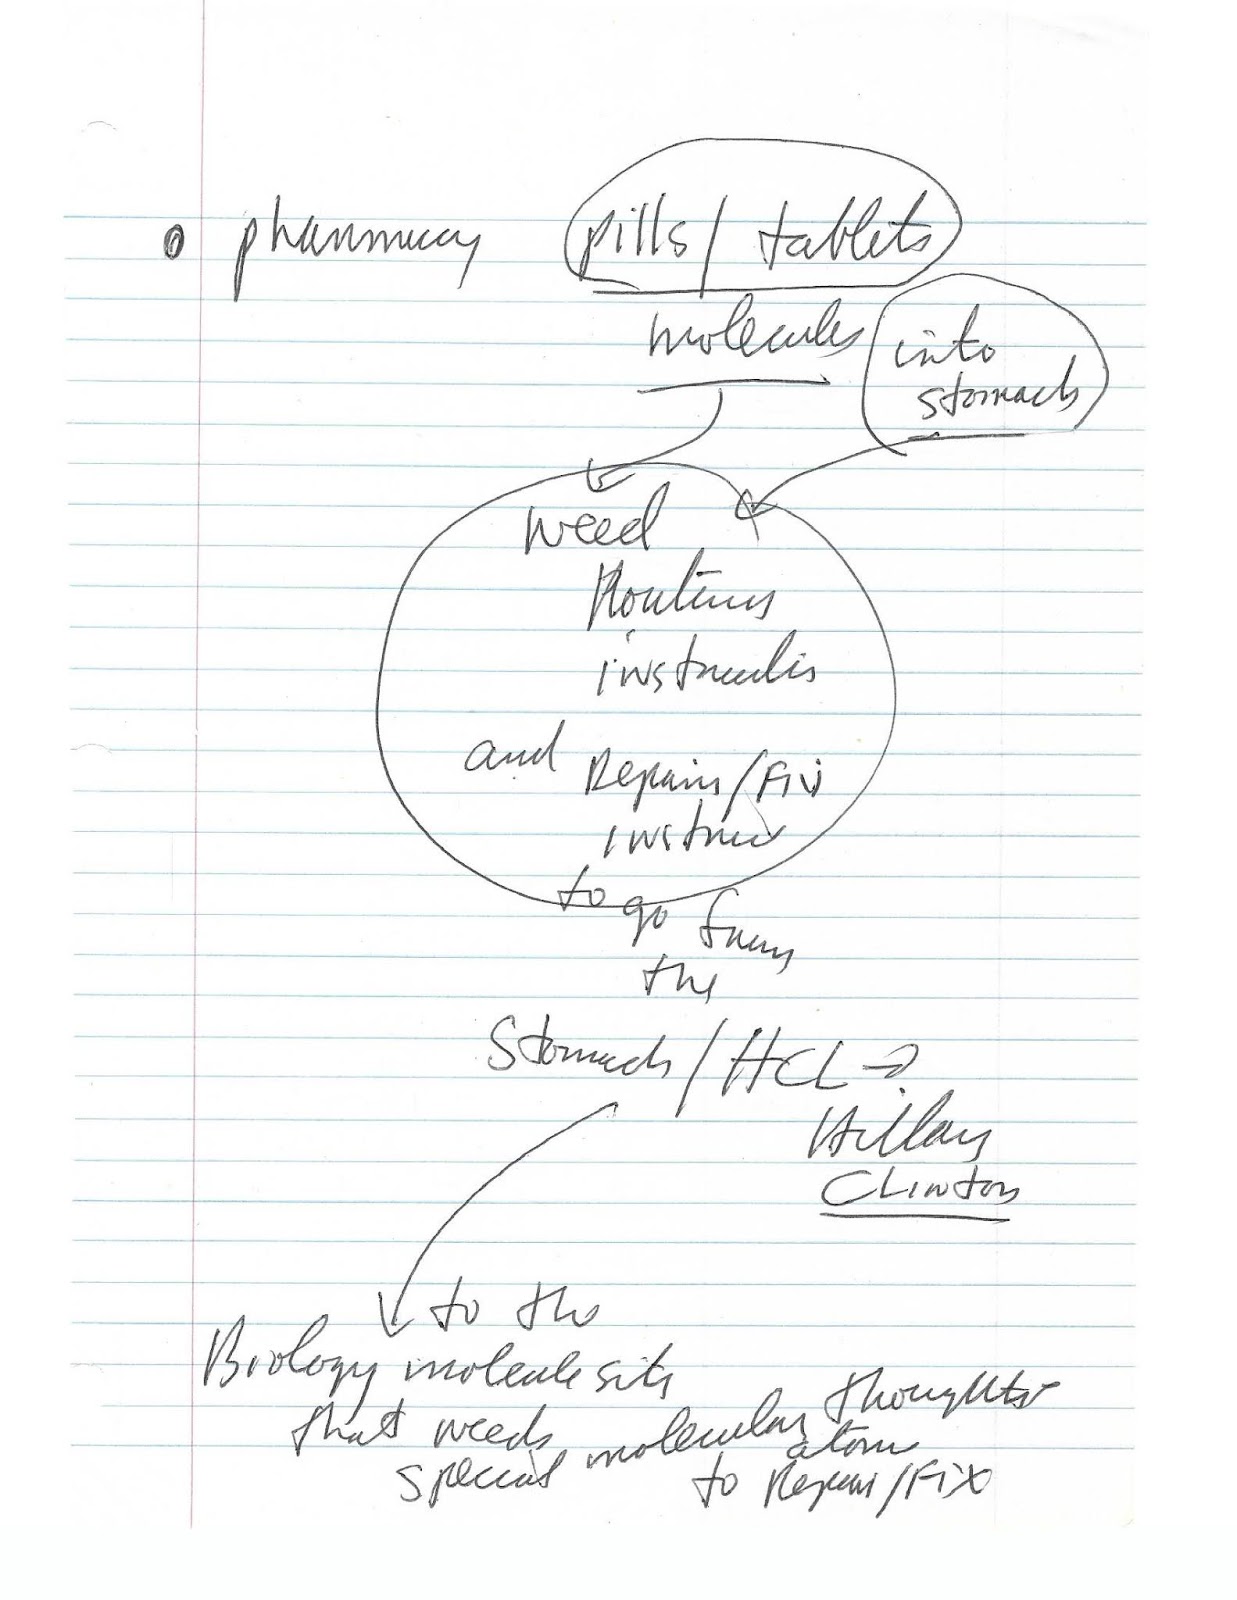 pharmacy pills / tablets
molecules
into
stomach
need
Routing
and Repair / Fix
to go from
the
Stomach / HCL →
Hillary
Clinton
to the
Biology molecule site
that needs molecular thoughts
special atom
to Repair / Fix